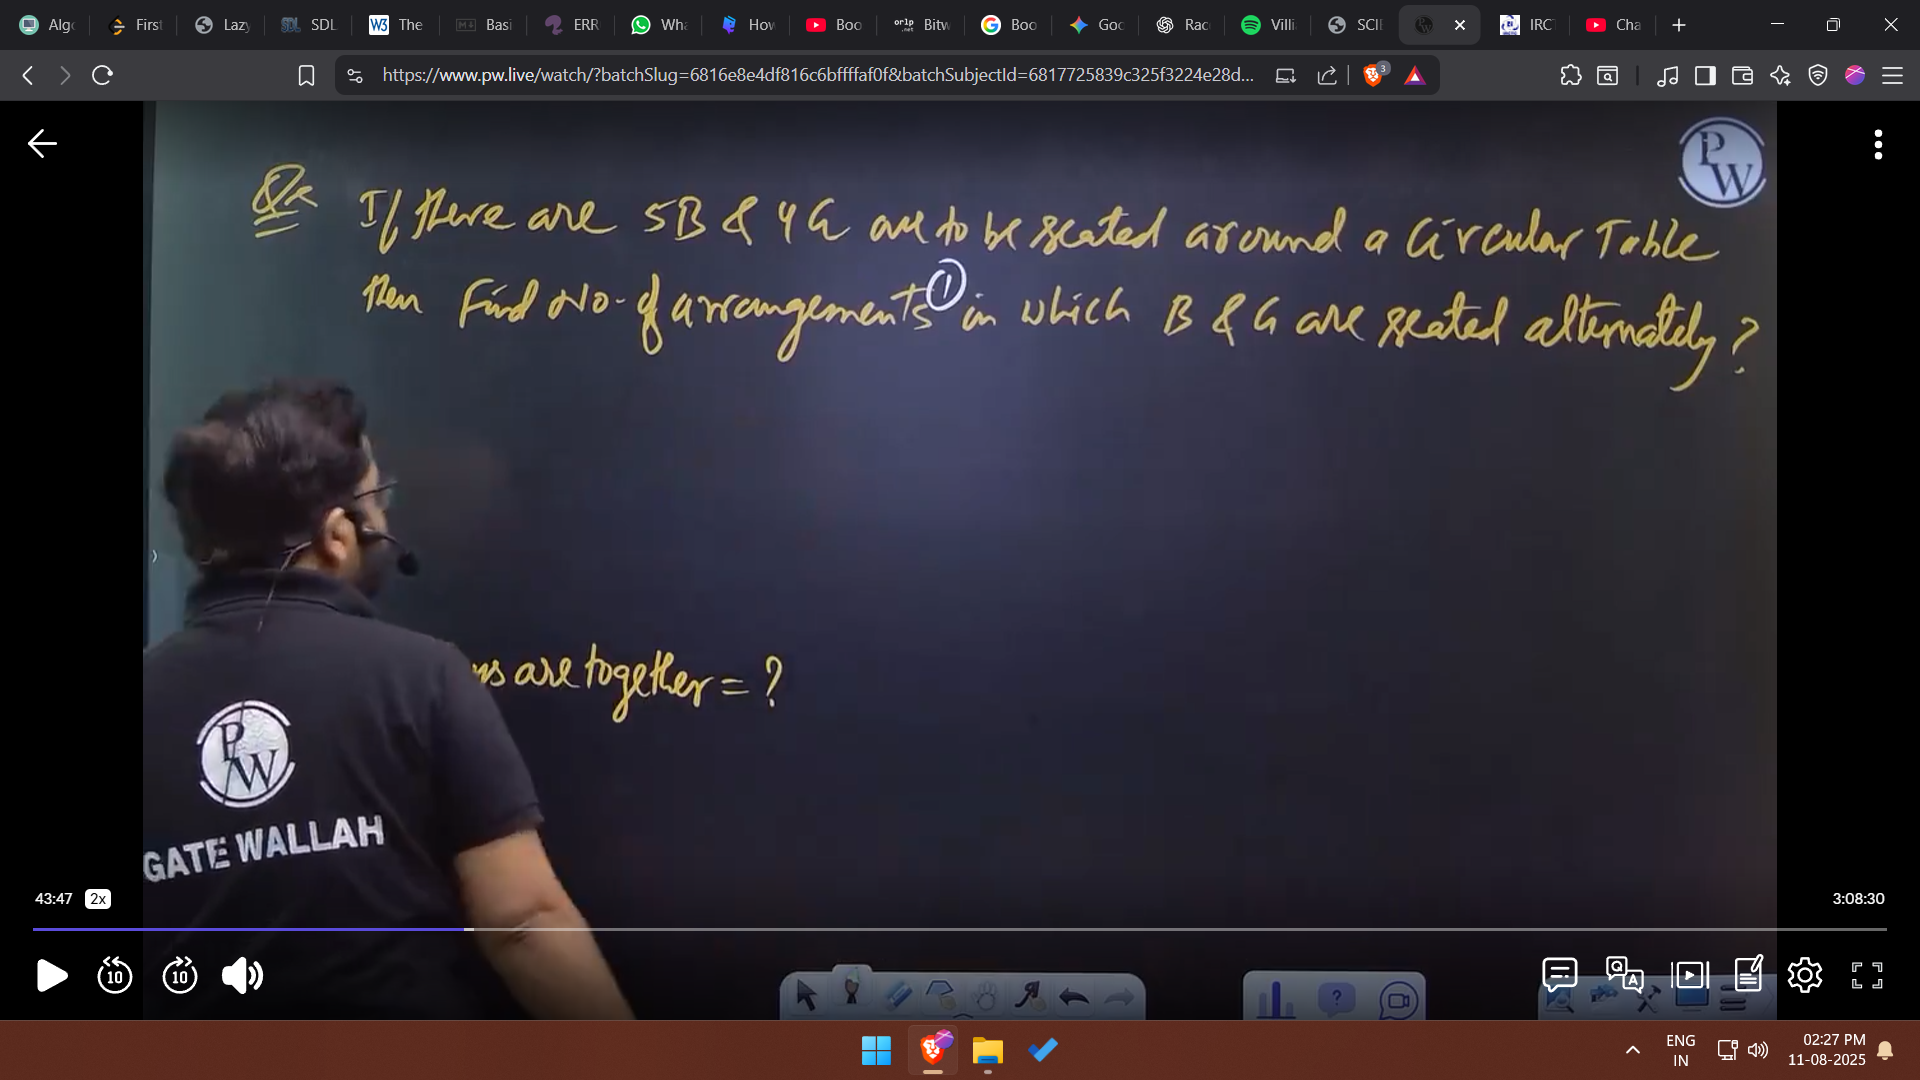 Algo
First
Lazy
SDL
W3 The
Basi
ERR
Wha
How
Boo
orlp .net Bitw
Boo
Goo
Rac
Villi
SCIE
IRCT
Cha
https://www.pw.live/watch/?batchSlug=6816e8e4df816c6bffffaf0f&batchSubjectId=6817725839c325f3224e28d...
3
PW
Q: If there are 5B & 4G are to be seated around a Circular Table
then Find No. of arrangements ① in which B & G are seated alternately?
ns are together = ?
PW
GATE WALLAH
43:47 2x
3:08:30
10 10
Q A
ENG
IN
02:27 PM
11-08-2025